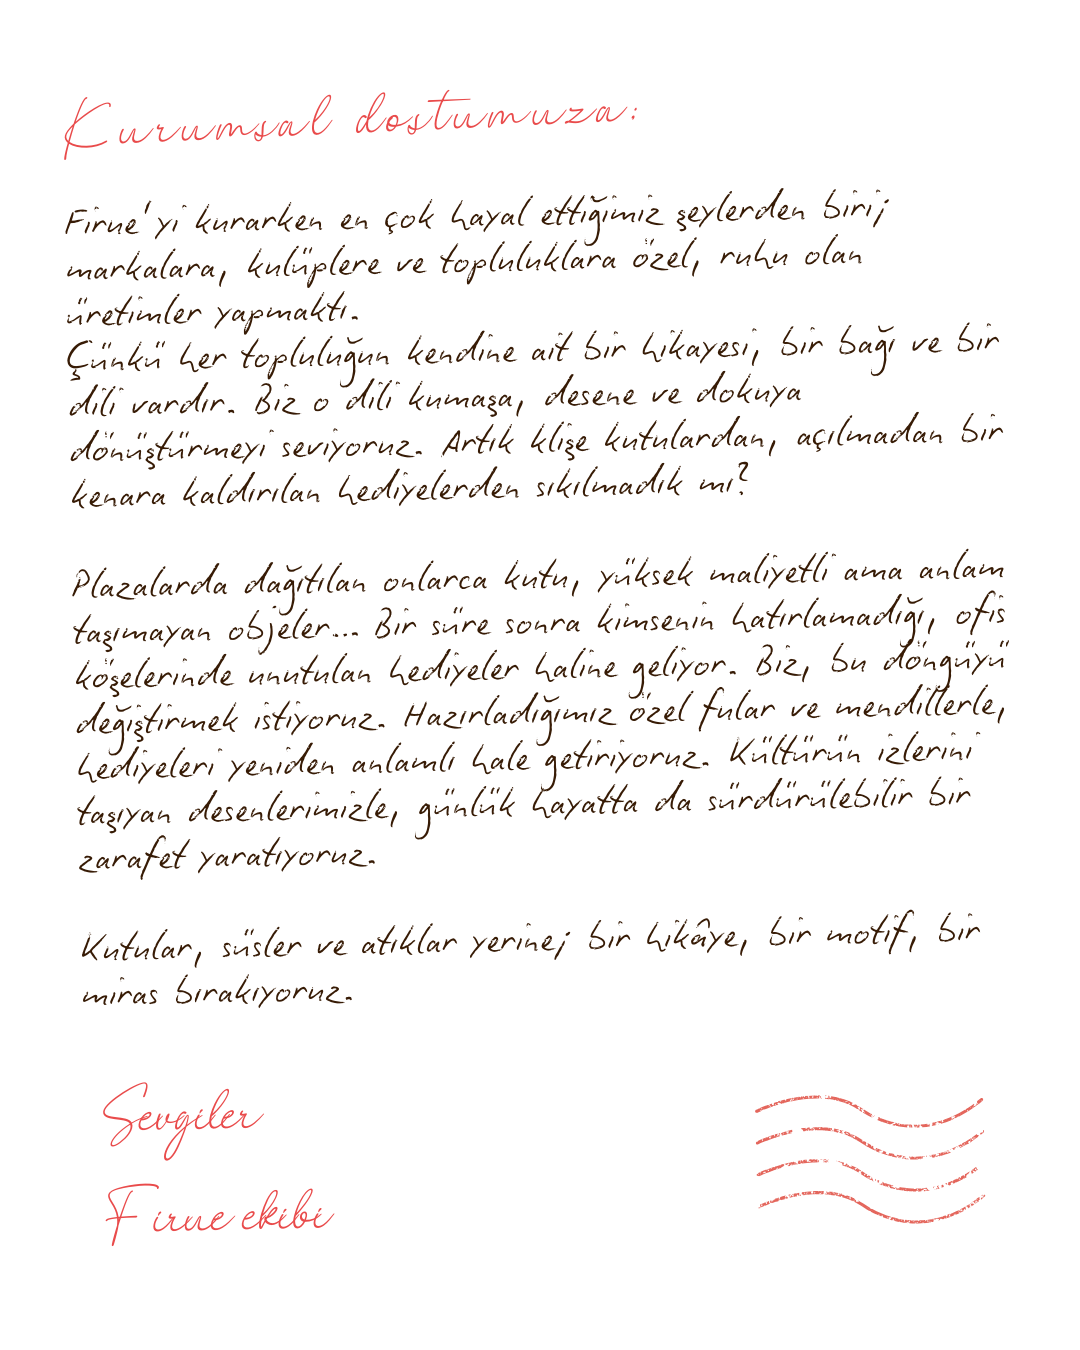 Kurumsal dostumuza:
Firue'yi kurarken en çok hayal ettiğimiz şeylerden biri;
markalara, kulüplere ve topluluklara özel, ruhu olan
üretimler yapmaktı.
Çünkü her topluluğun kendine ait bir hikayesi, bir bağı ve bir
dili vardır. Biz o dili kumaşa, desene ve dokuya
dönüştürmeyi seviyoruz. Artık klişe kutulardan, açılmadan bir
kenara kaldırılan hediyelerden sıkılmadık mı?
Plazalarda dağıtılan onlarca kutu, yüksek maliyetli ama anlam
taşımayan objeler... Bir süre sonra kimsenin hatırlamadığı, ofis
köşelerinde unutulan hediyeler haline geliyor. Biz, bu döngüyü
değiştirmek istiyoruz. Hazırladığımız özel fular ve mendillerle,
hediyeleri yeniden anlamlı hale getiriyoruz. Kültürün izlerini
taşıyan desenlerimizle, günlük hayatta da sürdürülebilir bir
zarafet yaratıyoruz.
Kutular, süsler ve atıklar yerine; bir hikâye, bir motif, bir
miras bırakıyoruz.
Sevgiler
Firue ekibi